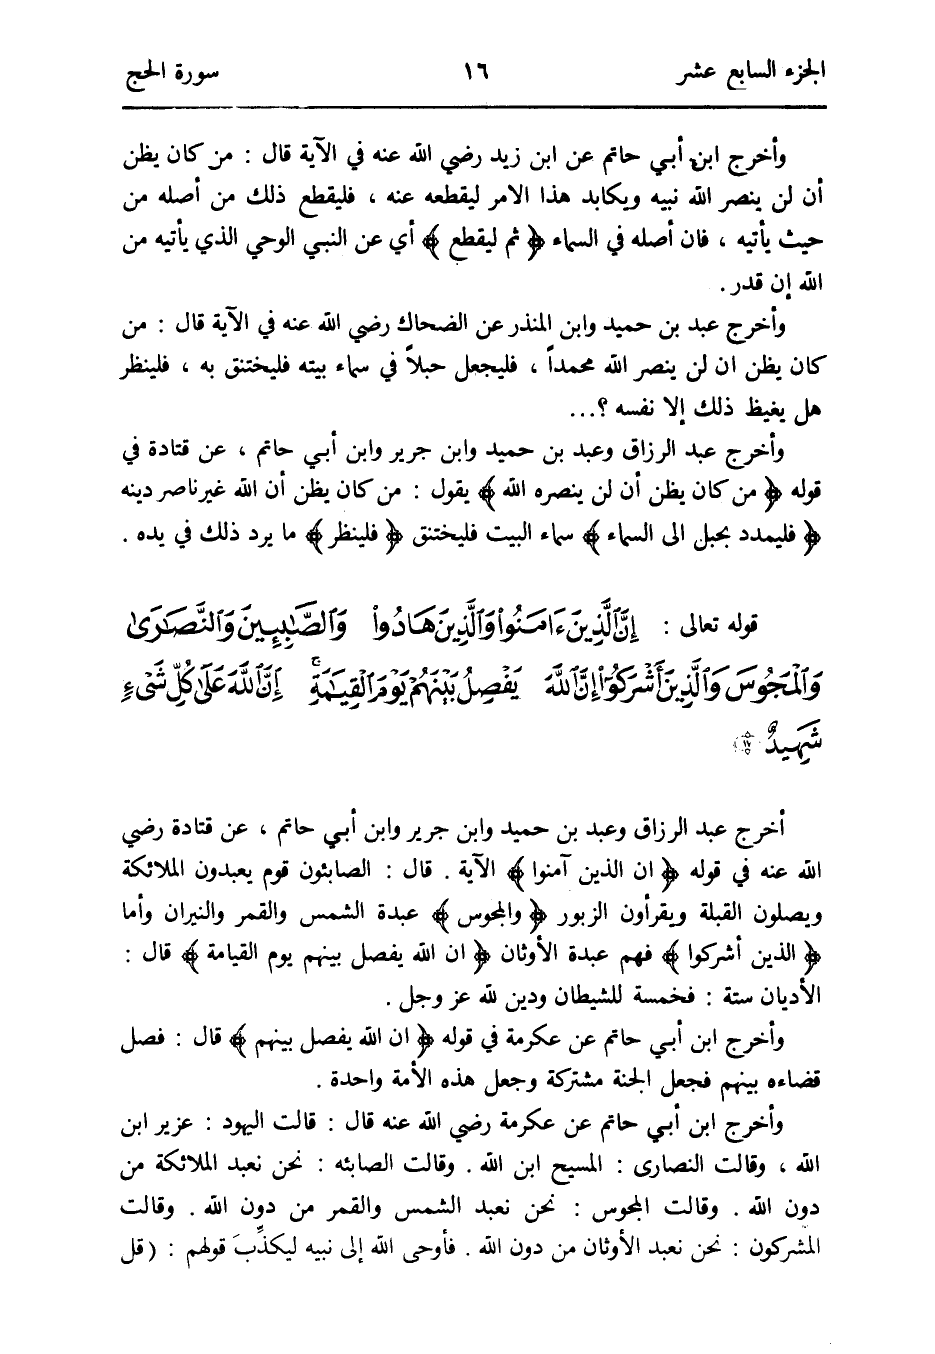 الجزء السابع عشر ١٦ سورة الحج
وأخرج ابن أبي حاتم عن ابن زيد رضي الله عنه في الآية قال : من كان يظن
أن لن ينصر الله نبيه ويكابد هذا الامر ليقطعه عنه ، فليقطع ذلك من أصله من
حيث يأتيه ، فان أصله في السماء ﴿ ثم ليقطع ﴾ أي عن النبي الوحي الذي يأتيه من
الله إن قدر .
وأخرج عبد بن حميد وابن المنذر عن الضحاك رضي الله عنه في الآية قال : من
كان يظن ان لن ينصر الله محمداً ، فليجعل حبلاً في سماء بيته فليختنق به ، فلينظر
هل يغيظ ذلك إلا نفسه ؟...
وأخرج عبد الرزاق وعبد بن حميد وابن جرير وابن أبي حاتم ، عن قتادة في
قوله ﴿ من كان يظن أن لن ينصره الله ﴾ يقول : من كان يظن أن الله غير ناصر دينه
﴿ فليمدد بحبل الى السماء ﴾ سماء البيت فليختنق ﴿ فلينظر ﴾ ما يرد ذلك في يده .
قوله تعالى : إِنَّ ٱلَّذِينَ ءَامَنُوا۟ وَٱلَّذِينَ هَادُوا۟ وَٱلصَّٰبِـِٔينَ وَٱلنَّصَٰرَىٰ
وَٱلْمَجُوسَ وَٱلَّذِينَ أَشْرَكُوٓا۟ إِنَّ ٱللَّهَ يَفْصِلُ بَيْنَهُمْ يَوْمَ ٱلْقِيَٰمَةِ ۚ إِنَّ ٱللَّهَ عَلَىٰ كُلِّ شَىْءٍ
شَهِيدٌ ﴿١٧﴾
أخرج عبد الرزاق وعبد بن حميد وابن جرير وابن أبي حاتم ، عن قتادة رضي
الله عنه في قوله ﴿ ان الذين آمنوا ﴾ الآية . قال : الصابئون قوم يعبدون الملائكة
ويصلون القبلة ويقرأون الزبور ﴿ والمجوس ﴾ عبدة الشمس والقمر والنيران وأما
﴿ الذين أشركوا ﴾ فهم عبدة الأوثان ﴿ ان الله يفصل بينهم يوم القيامة ﴾ قال :
الأديان ستة : فخمسة للشيطان ودين لله عز وجل .
وأخرج ابن أبي حاتم عن عكرمة في قوله ﴿ ان الله يفصل بينهم ﴾ قال : فصل
قضاءه بينهم فجعل الجنة مشتركة وجعل هذه الأمة واحدة .
وأخرج ابن أبي حاتم عن عكرمة رضي الله عنه قال : قالت اليهود : عزير ابن
الله ، وقالت النصارى : المسيح ابن الله . وقالت الصابئه : نحن نعبد الملائكة من
دون الله . وقالت المجوس : نحن نعبد الشمس والقمر من دون الله . وقالت
المشركون : نحن نعبد الأوثان من دون الله . فأوحى الله إلى نبيه ليكذِّبَ قولهم : ( قل